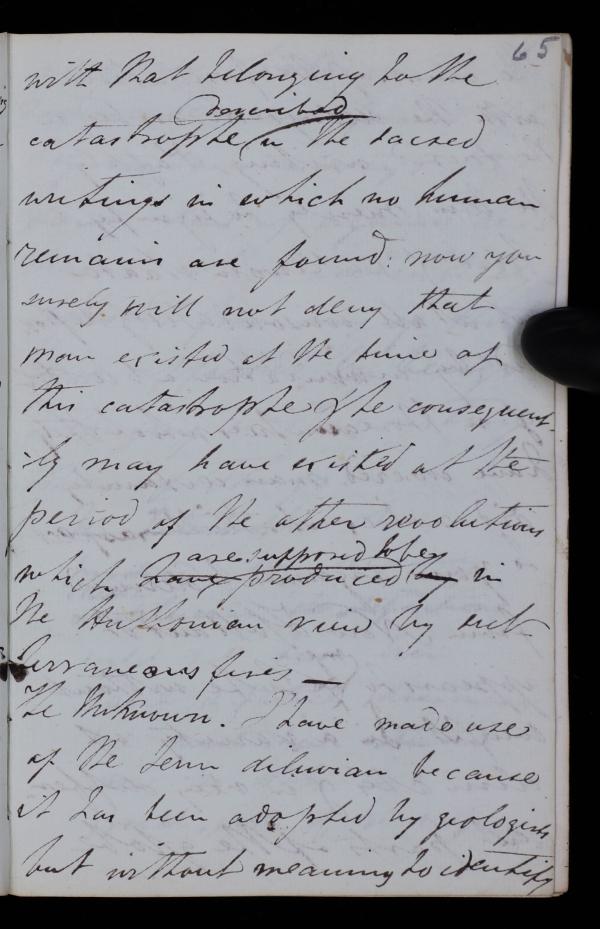 65
with that belonging to the
described
catastrophe in the sacred
writings in which no human
remains are found: now you
surely will not deny that
man existed at the time of
this catastrophe & he consequent-
-ly may have existed at the
period of the other revolutions
are supposed to be
which have produced by in
the Huttonian view by subt
terraneous fires —
The Unknown. I have made use
of the term diluvian because
it has been adopted by geologists
but without meaning to identify